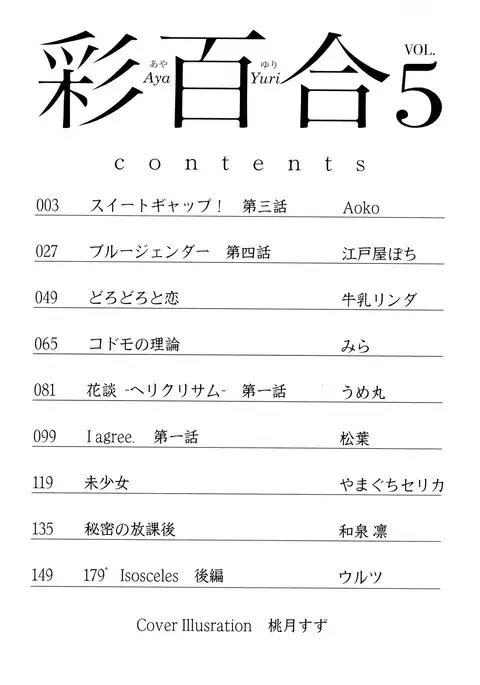 彩百合 VOL. 5
あや ゆり
Aya Yuri
contents
003 スイートギャップ! 第三話 Aoko
027 ブルージェンダー 第四話 江戸屋ぽち
049 どろどろと恋 牛乳リンダ
065 コドモの理論 みら
081 花談 -ヘリクリサム- 第一話 うめ丸
099 I agree. 第一話 松葉
119 未少女 やまぐちセリカ
135 秘密の放課後 和泉 凛
149 179° Isosceles 後編 ウルツ
Cover Illusration 桃月すず